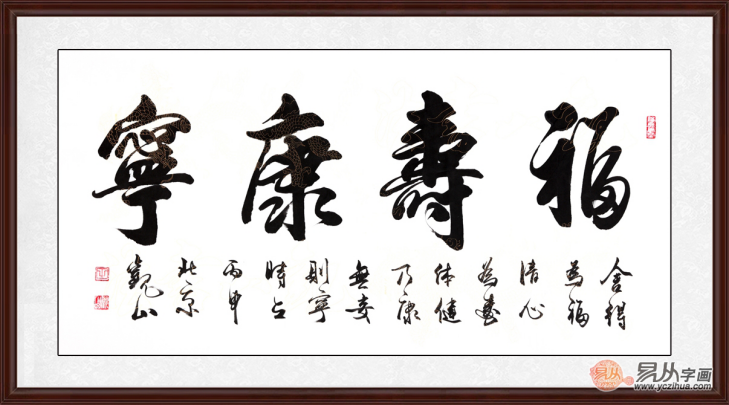 福壽康寧
舍得
為福
清心
為壽
体健
乃康
無妄
則寧
時
丙申
北京
觀山
易从
易从字画
www.yczihua.com